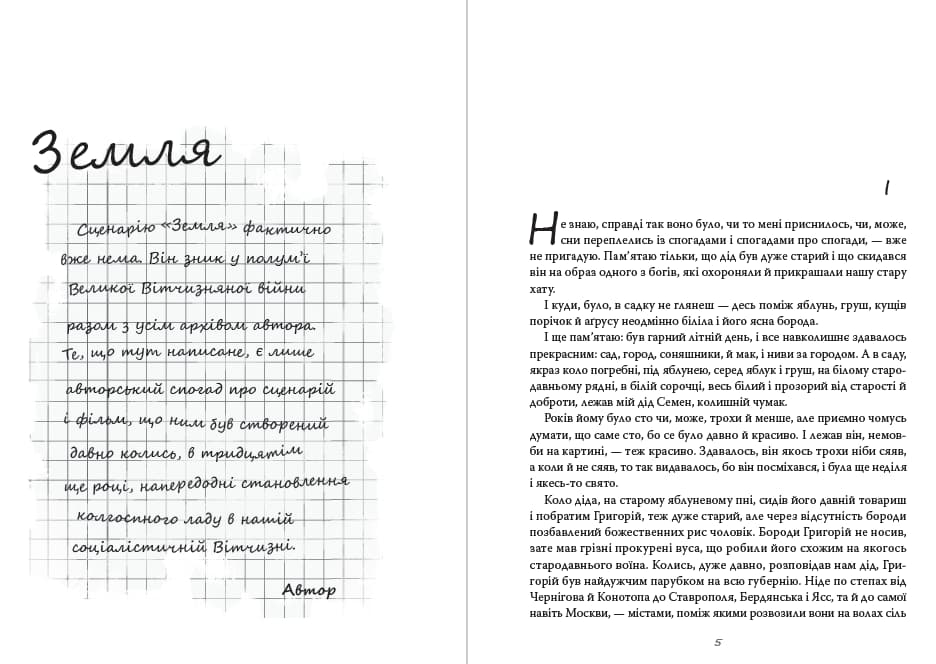 Земля
Сценарію «Земля» фактично
вже нема. Він зник у полум’ї
Великої Вітчизняної війни
разом з усім архівом автора.
Те, що тут написане, є лише
авторський спогад про сценарій
і фільм, що ним був створений
давно колись, в тридцятім
ще році, напередодні становлення
колгоспного ладу в нашій
соціалістичній Вітчизні.
Автор
I
Не знаю, справді так воно було, чи то мені приснилось, чи, може,
сни переплелись із спогадами і спогадами про спогади, — вже
не пригадую. Пам’ятаю тільки, що дід був дуже старий і що скидався
він на образ одного з богів, які охороняли й прикрашали нашу стару
хату.
І куди, було, в садку не глянеш — десь поміж яблунь, груш, кущів
порічок й аґрусу неодмінно біліла і його ясна борода.
І ще пам’ятаю: був гарний літній день, і все навколишнє здавалось
прекрасним: сад, город, соняшники, й мак, і ниви за городом. А в саду,
якраз коло погребні, під яблунею, серед яблук і груш, на білому старо-
давньому рядні, в білій сорочці, весь білий і прозорий від старості й
доброти, лежав мій дід Семен, колишній чумак.
Років йому було сто чи, може, трохи й менше, але приємно чомусь
думати, що саме сто, бо се було давно й красиво. І лежав він, немов-
би на картині, — теж красиво. Здавалось, він якось трохи ніби сяяв,
а коли й не сяяв, то так видавалось, бо він посміхався, і була ще неділя
і якесь-то свято.
Коло діда, на старому яблуневому пні, сидів його давній товариш
і побратим Григорій, теж дуже старий, але через відсутність бороди
позбавлений божественних рис чоловік. Бороди Григорій не носив,
зате мав грізні прокурені вуса, що робили його схожим на якогось
стародавнього воїна. Колись, дуже давно, розповідав нам дід, Гри-
горій був найдужчим парубком на всю губернію. Ніде по степах від
Чернігова й Конотопа до Ставрополя, Бердянська і Ясс, та й до самої
навіть Москви, — містами, поміж якими розвозили вони на волах сіль
5